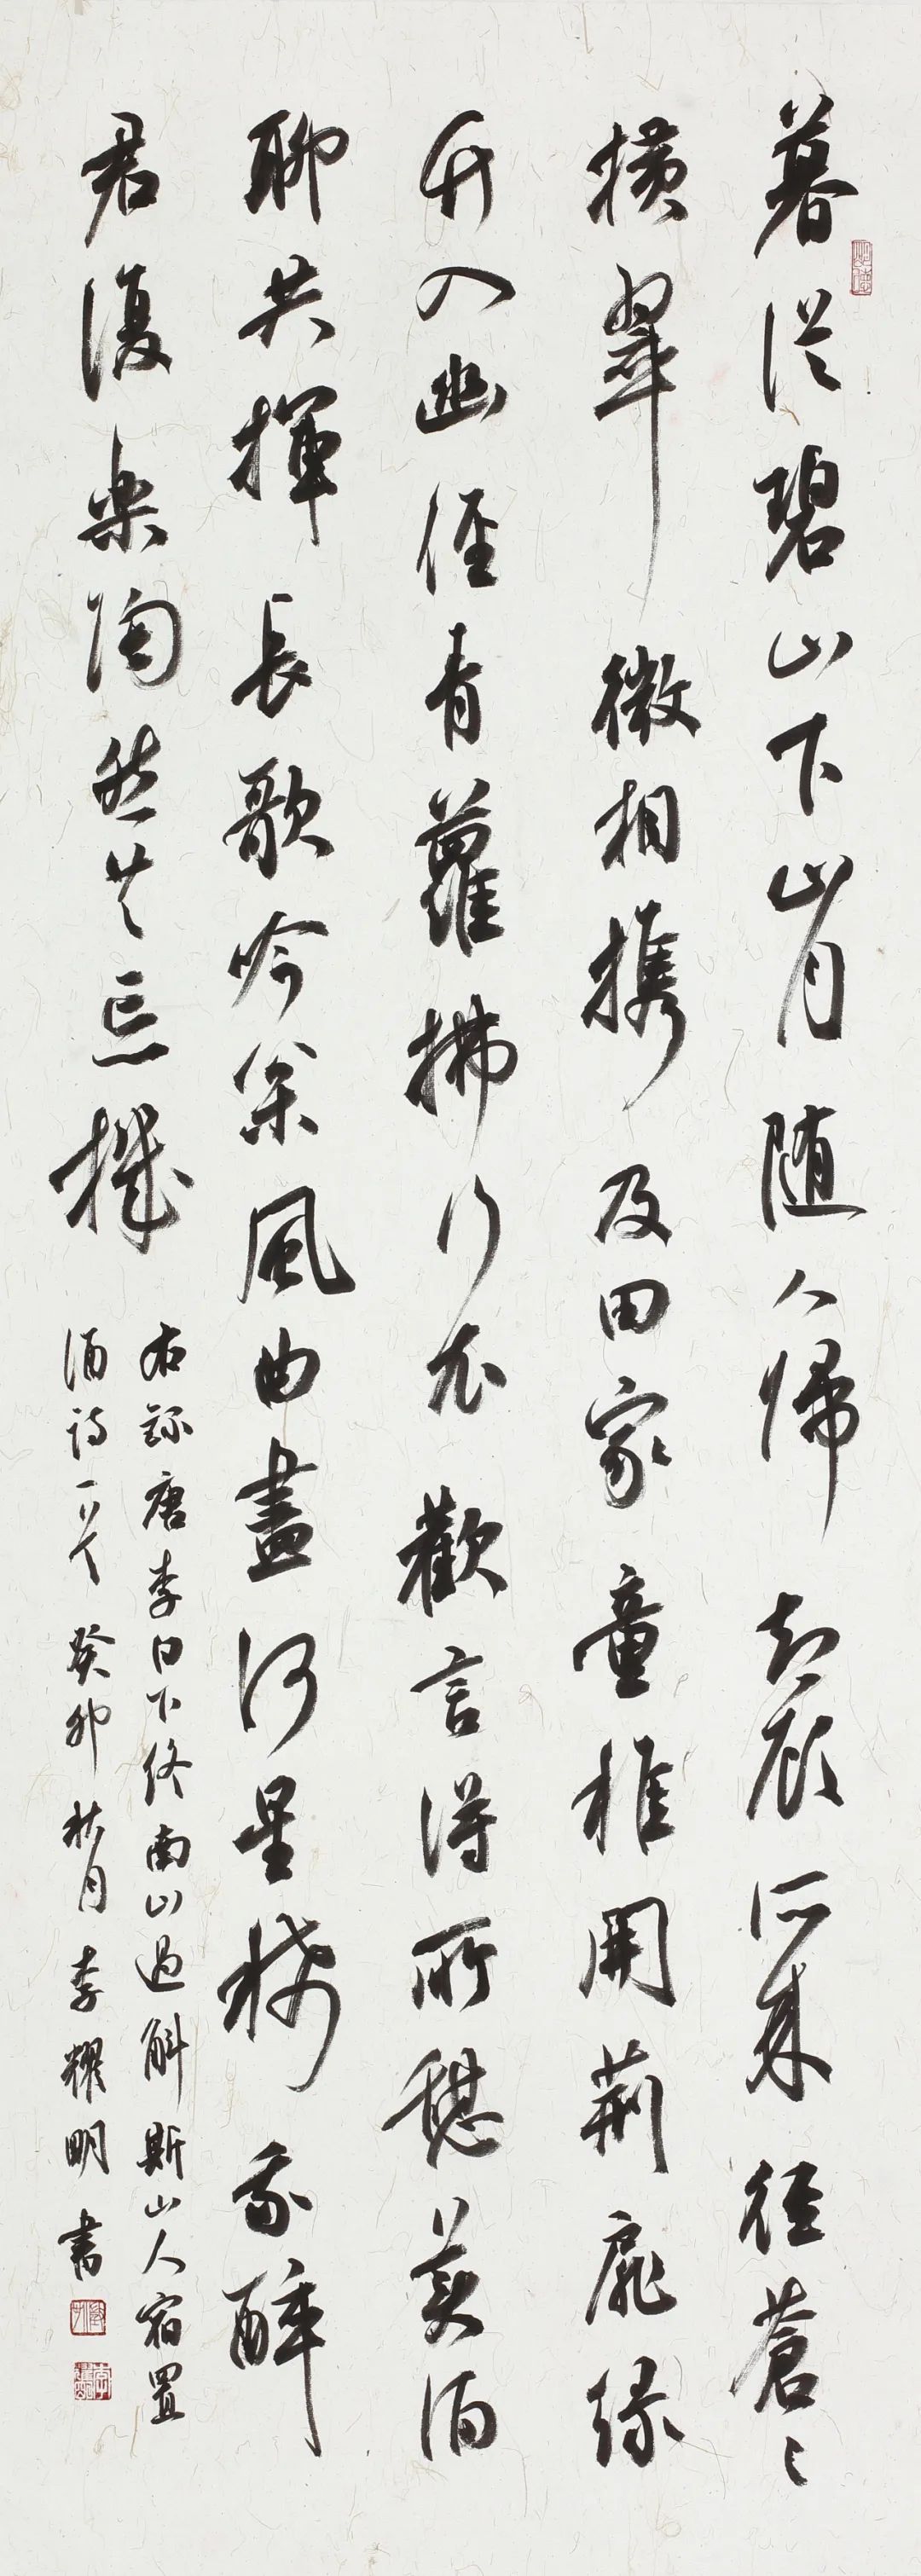 暮從碧山下山月随人歸却顧所來徑蒼々
橫翠微相携及田家童稚開荊扉綠
竹入幽徑青蘿拂行衣歡言得所憩美酒
聊共揮長歌吟枀風曲盡河星稀我醉
君復楽陶然共忘機
右錄唐李白下終南山過斛斯山人宿置
酒詩一首 癸卯秋月 李耀明書